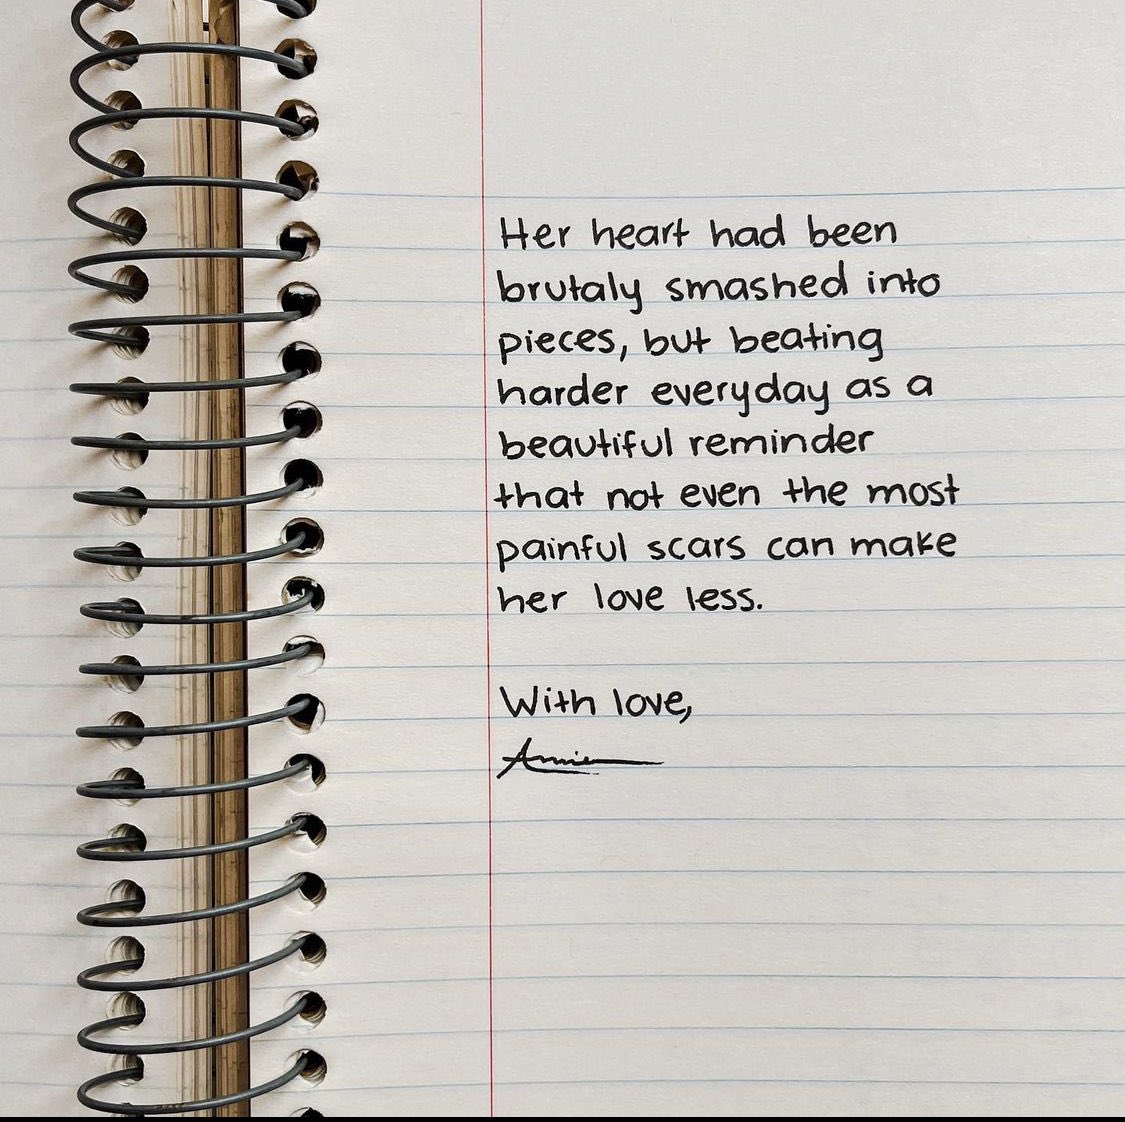 Her heart had been
brutaly smashed into
pieces, but beating
harder everyday as a
beautiful reminder
that not even the most
painful scars can make
her love less.
With love,
Annie